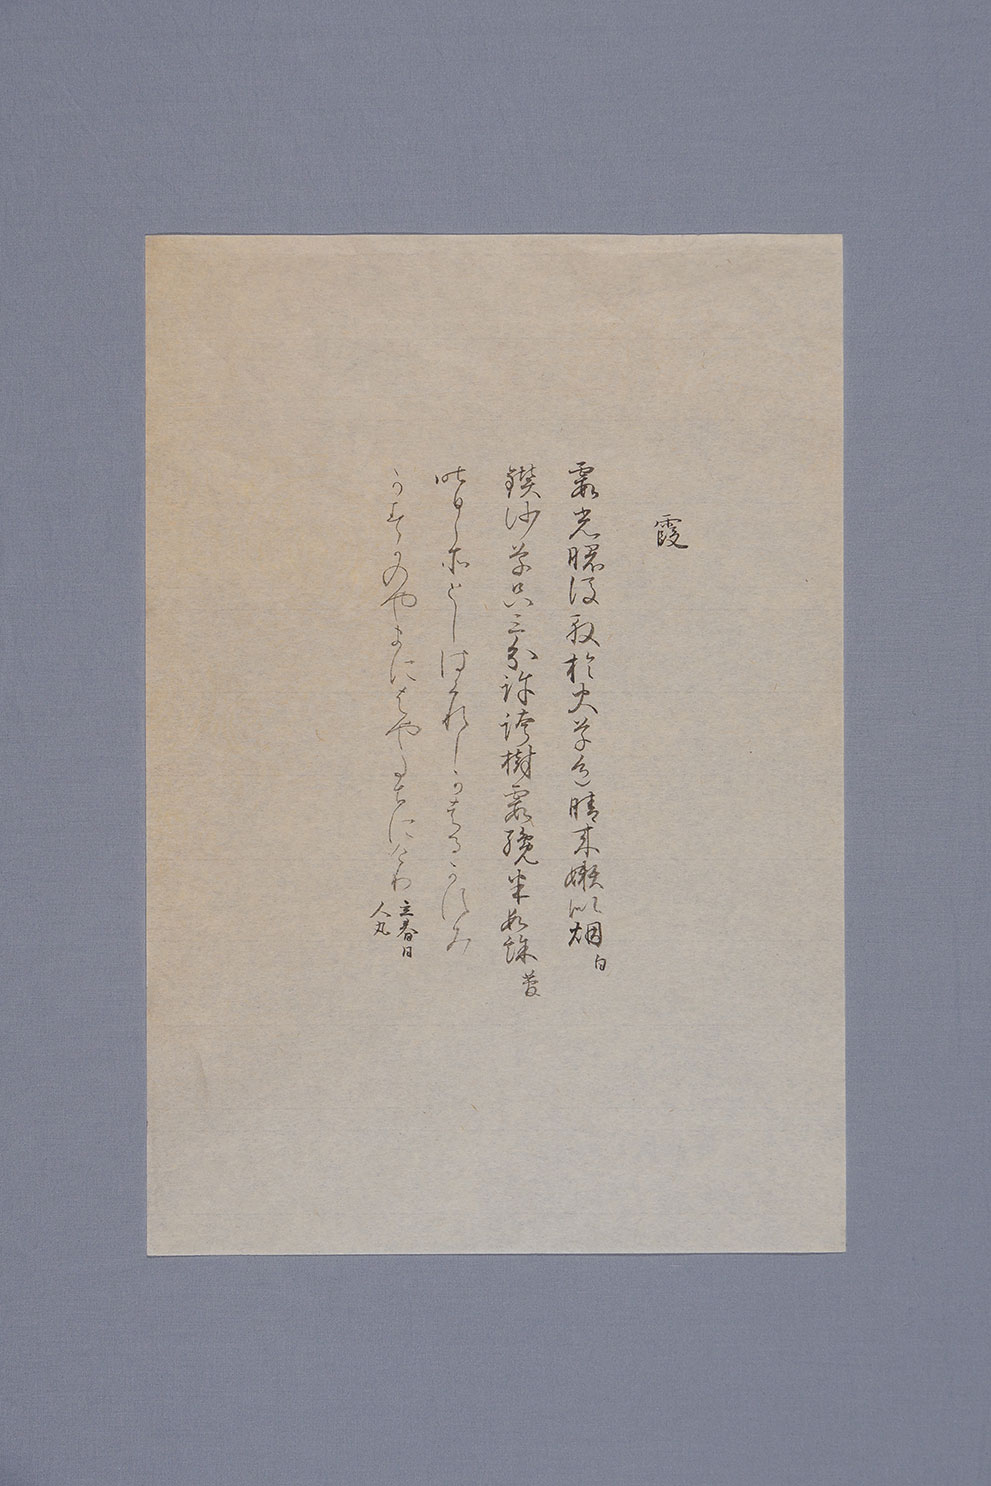 霞
霞光曙後殷於火草色晴来嫩似烟 白
鑚沙草只三分許跨樹霞纔半段餘 菅
昨日こそとしはくれしかはるかすみ
かすかのやまにはやたちにけり 立春日
人丸